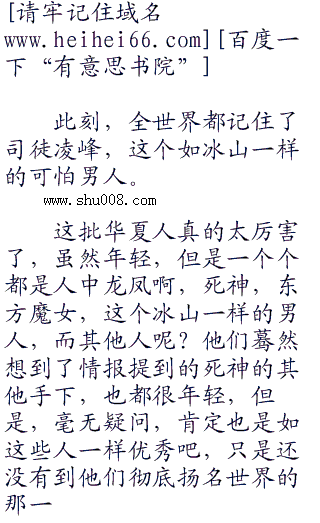 [请牢记住域名
www.heihei66.com][百度一
下“有意思书院”]
此刻，全世界都记住了
司徒凌峰，这个如冰山一样
的可怕男人。
www.shu008.com
这批华夏人真的太厉害
了，虽然年轻，但是一个个
都是人中龙凤啊，死神，东
方魔女，这个冰山一样的男
人，而其他人呢？他们蓦然
想到了情报提到的死神的其
他手下，也都很年轻，但
是，毫无疑问，肯定也是如
这些人一样优秀吧，只是还
没有到他们彻底扬名世界的
那一